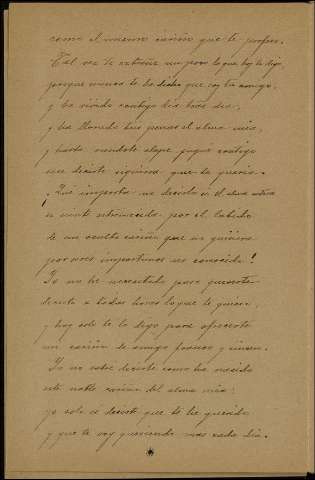 como el inmenso cariño que te profeso.
Tal vez te extrañe un poco lo que hoy te digo,
porque nunca te he dicho que soy tu amigo,
y he vivido contigo día tras día,
y ha llorado tus penas el alma mía,
y hasta siendo te el que jugué contigo
decirte siquiera que te quería.
¡Qué importa no decirlo si el alma entera
se siente estremecida por el latido
de un oculto cariño que no quisiera
por voces importunas ser conocido!
Yo no he necesitado para quererte
decirte a todas horas lo que te quiero,
y hoy solo te lo digo para ofrecerte
un cariño de amigo franco y sincero.
Yo no sabré decirte como ha nacido
este noble cariño del alma mía:
yo solo sé decirte que te he querido
y que te voy queriendo más cada día.